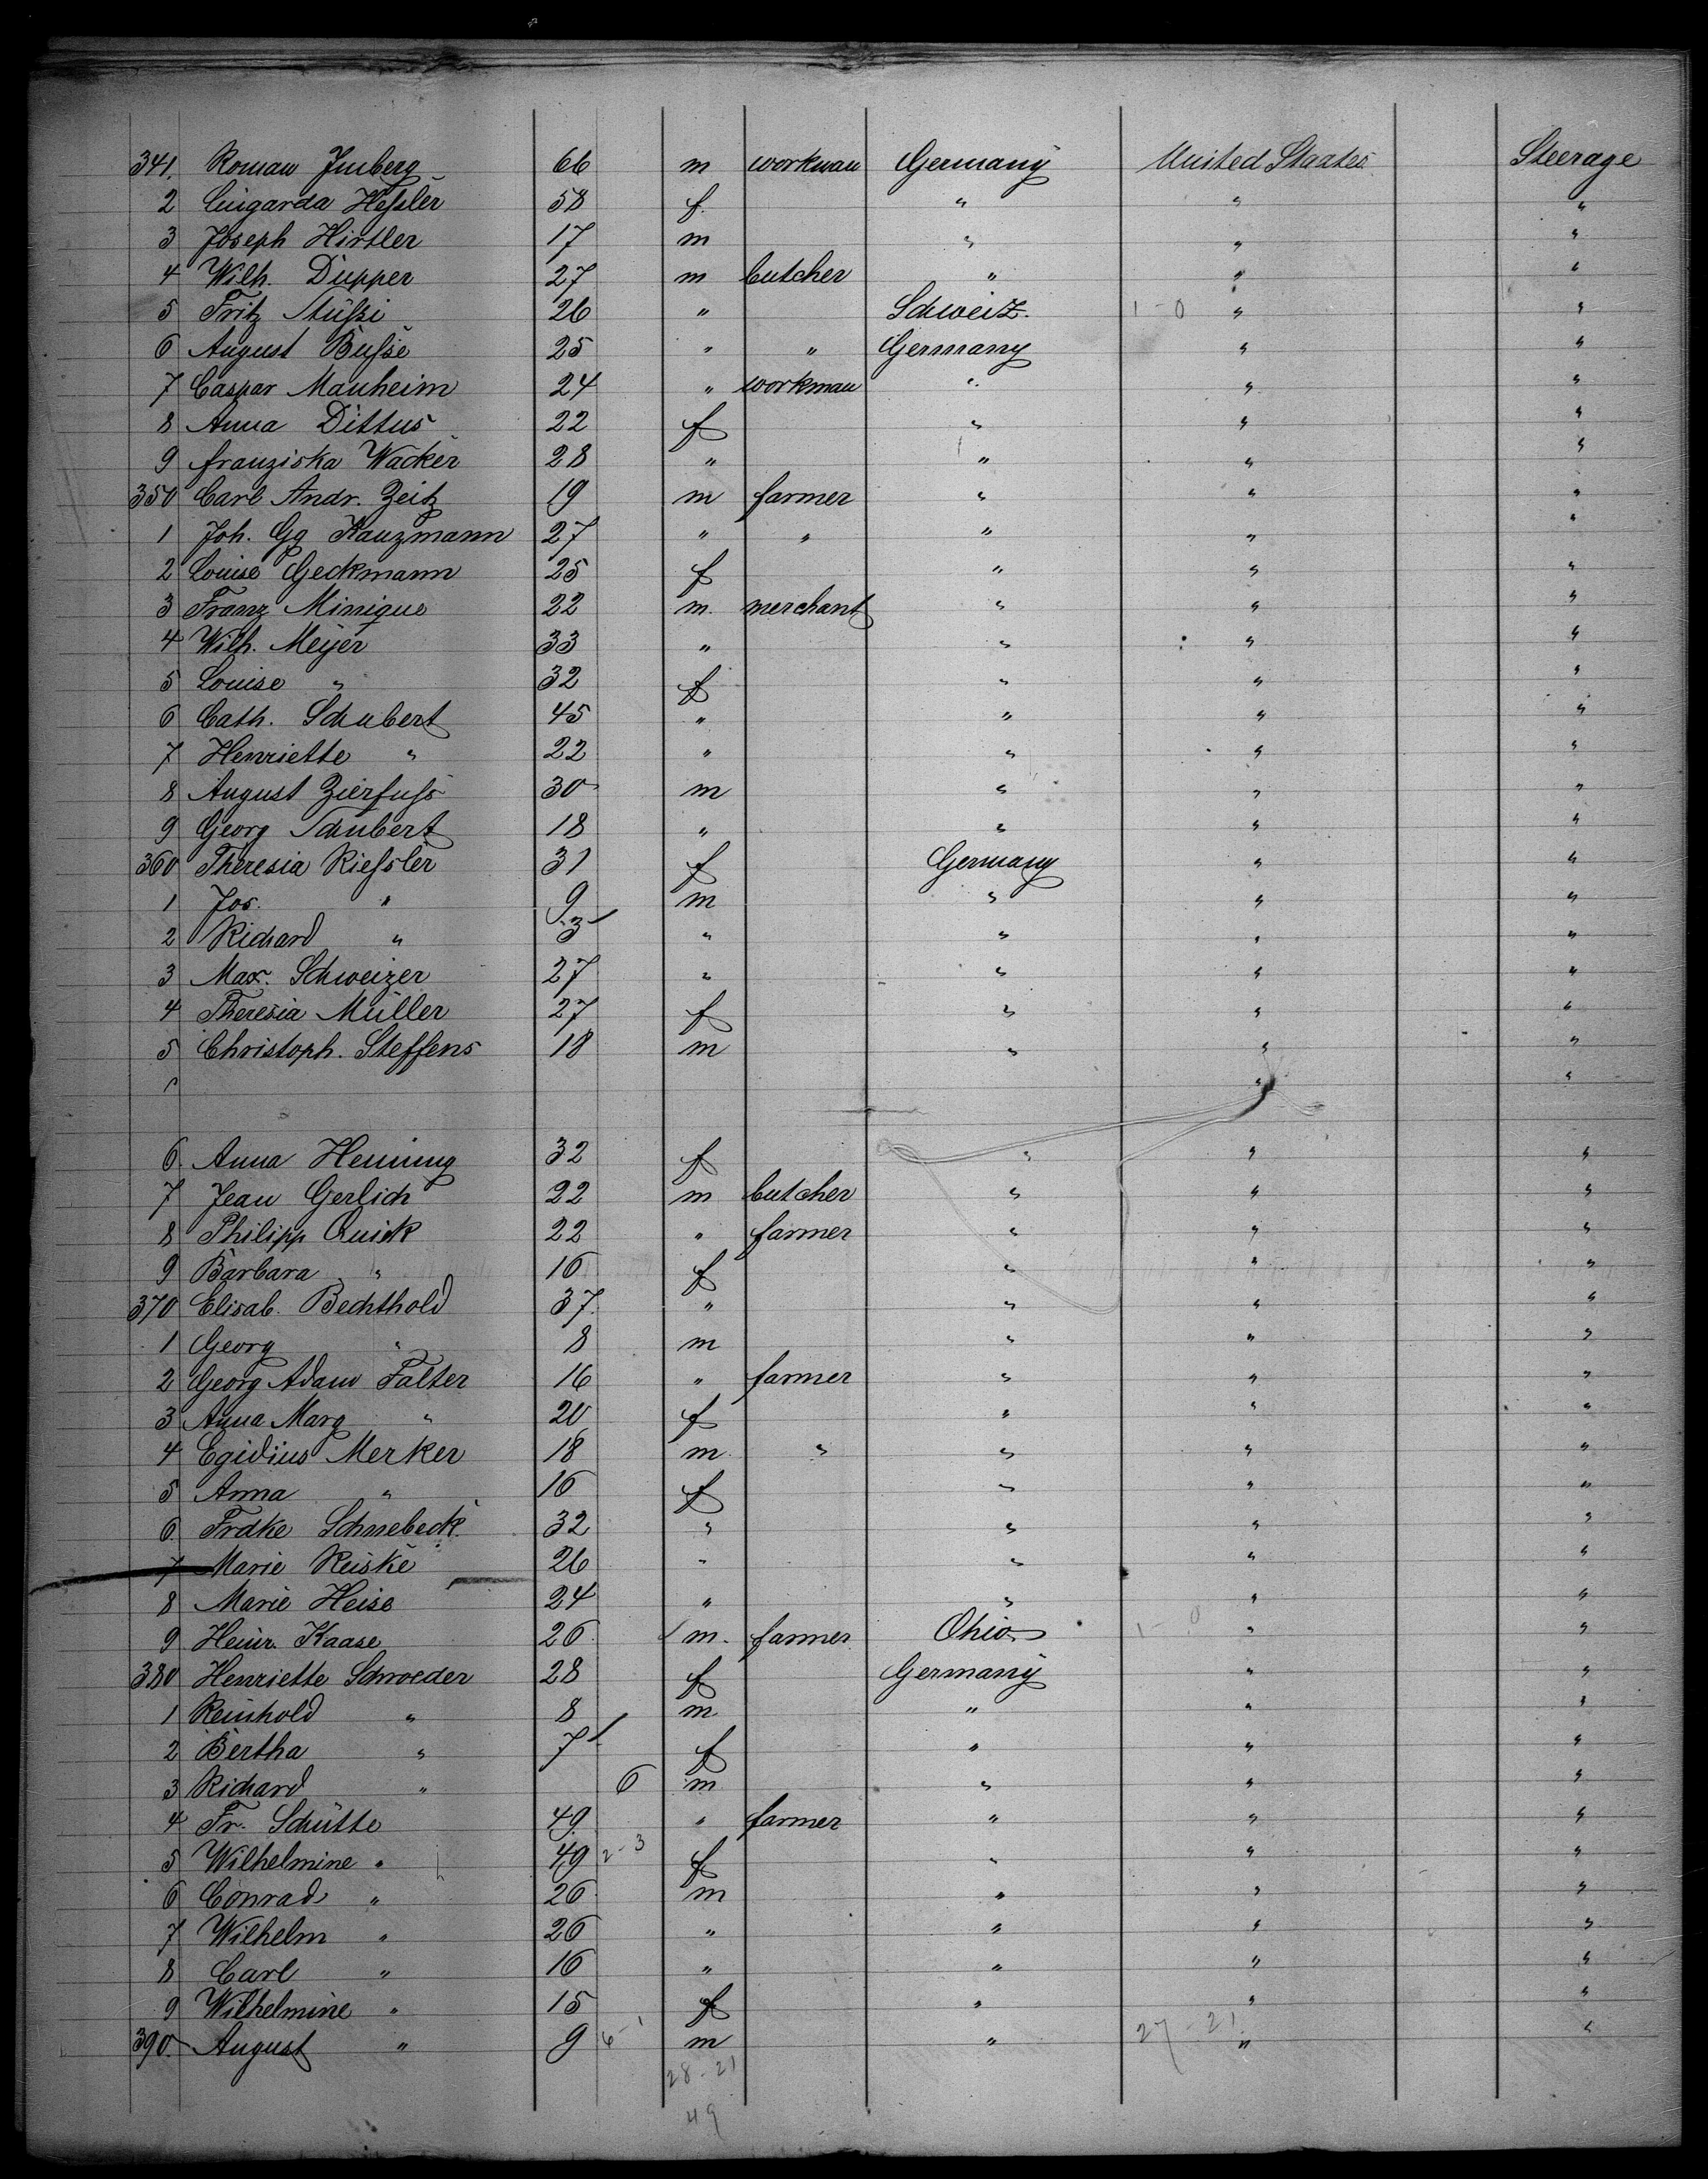 341. Roman Imberg 66 m workman Germany United Staates Steerage
2 Luigarda Heßler 58 f. " " "
3 Joseph Hirtler 17 m " " "
4 Wilh. Dupper 27 m butcher " " "
5 Fritz Stüßi 26 " Schweiz. 1-0 " "
6 August Buße 25 " " Germany " "
7 Caspar Manheim 24 " workman " " "
8 Anna Dittus 22 f " " "
9 franziska Wacker 28 " " " "
350 Carl Andr. Zeitz 19 m farmer " " "
1 Joh. Gg Kauzmann 27 " " " " "
2 Louise Geckmann 25 f " " "
3 Franz Minique 22 m. merchant " " "
4 Wilh. Meyer 33 " " " "
5 Louise " 32 f " " "
6 Cath. Schubert 45 " " " "
7 Henriette " 22 " " " "
8 August Zierfuß 30 m " " "
9 Georg Schubert 18 " " " "
360 Theresia Rießler 31 f Germany " "
1 Jos. " 9 m " " "
2 Richard " 3 " " " "
3 Max. Schweizer 27 " " " "
4 Theresia Müller 27 f " " "
5 Christoph. Steffens 18 m " " "
" "
6. Anna Henning 32 f " " "
7 Jean Gerlich 22 m butcher " " "
8 Philipp Quick 22 " farmer " " "
9 Barbara " 16 f " " "
370 Elisab. Bechthold 37. " " " "
1 Georg " 8 m " " "
2 Georg Adam Falter 16 " farmer " " "
3 Anna Marg " 20 f " " "
4 Egidius Merker 18 m " " " "
5 Anna " 16 f " " "
6. Frdke Schnebeck 32 " " " "
7 Marie Reiske 26 " " " "
8 Marie Heise 24 " " " "
9 Heinr. Kaase 26. m. farmer Ohio 1-0 " "
380 Henriette Schroeder 28 f Germany " "
1 Reinhold " 8 m " " "
2 Bertha " 7 f " " "
3 Richard " 6 m " " "
4 Fr. Schütte 49. " farmer " " "
5 Wilhelmine " 49 2-3 f " " "
6 Conrad " 26. m " " "
7 Wilhelm " 26 " " " "
8 Carl " 16 " " " "
9 Wilhelmine " 15 f " " "
390. August " 9 6-1 m " 27-21 " "
28-21
49